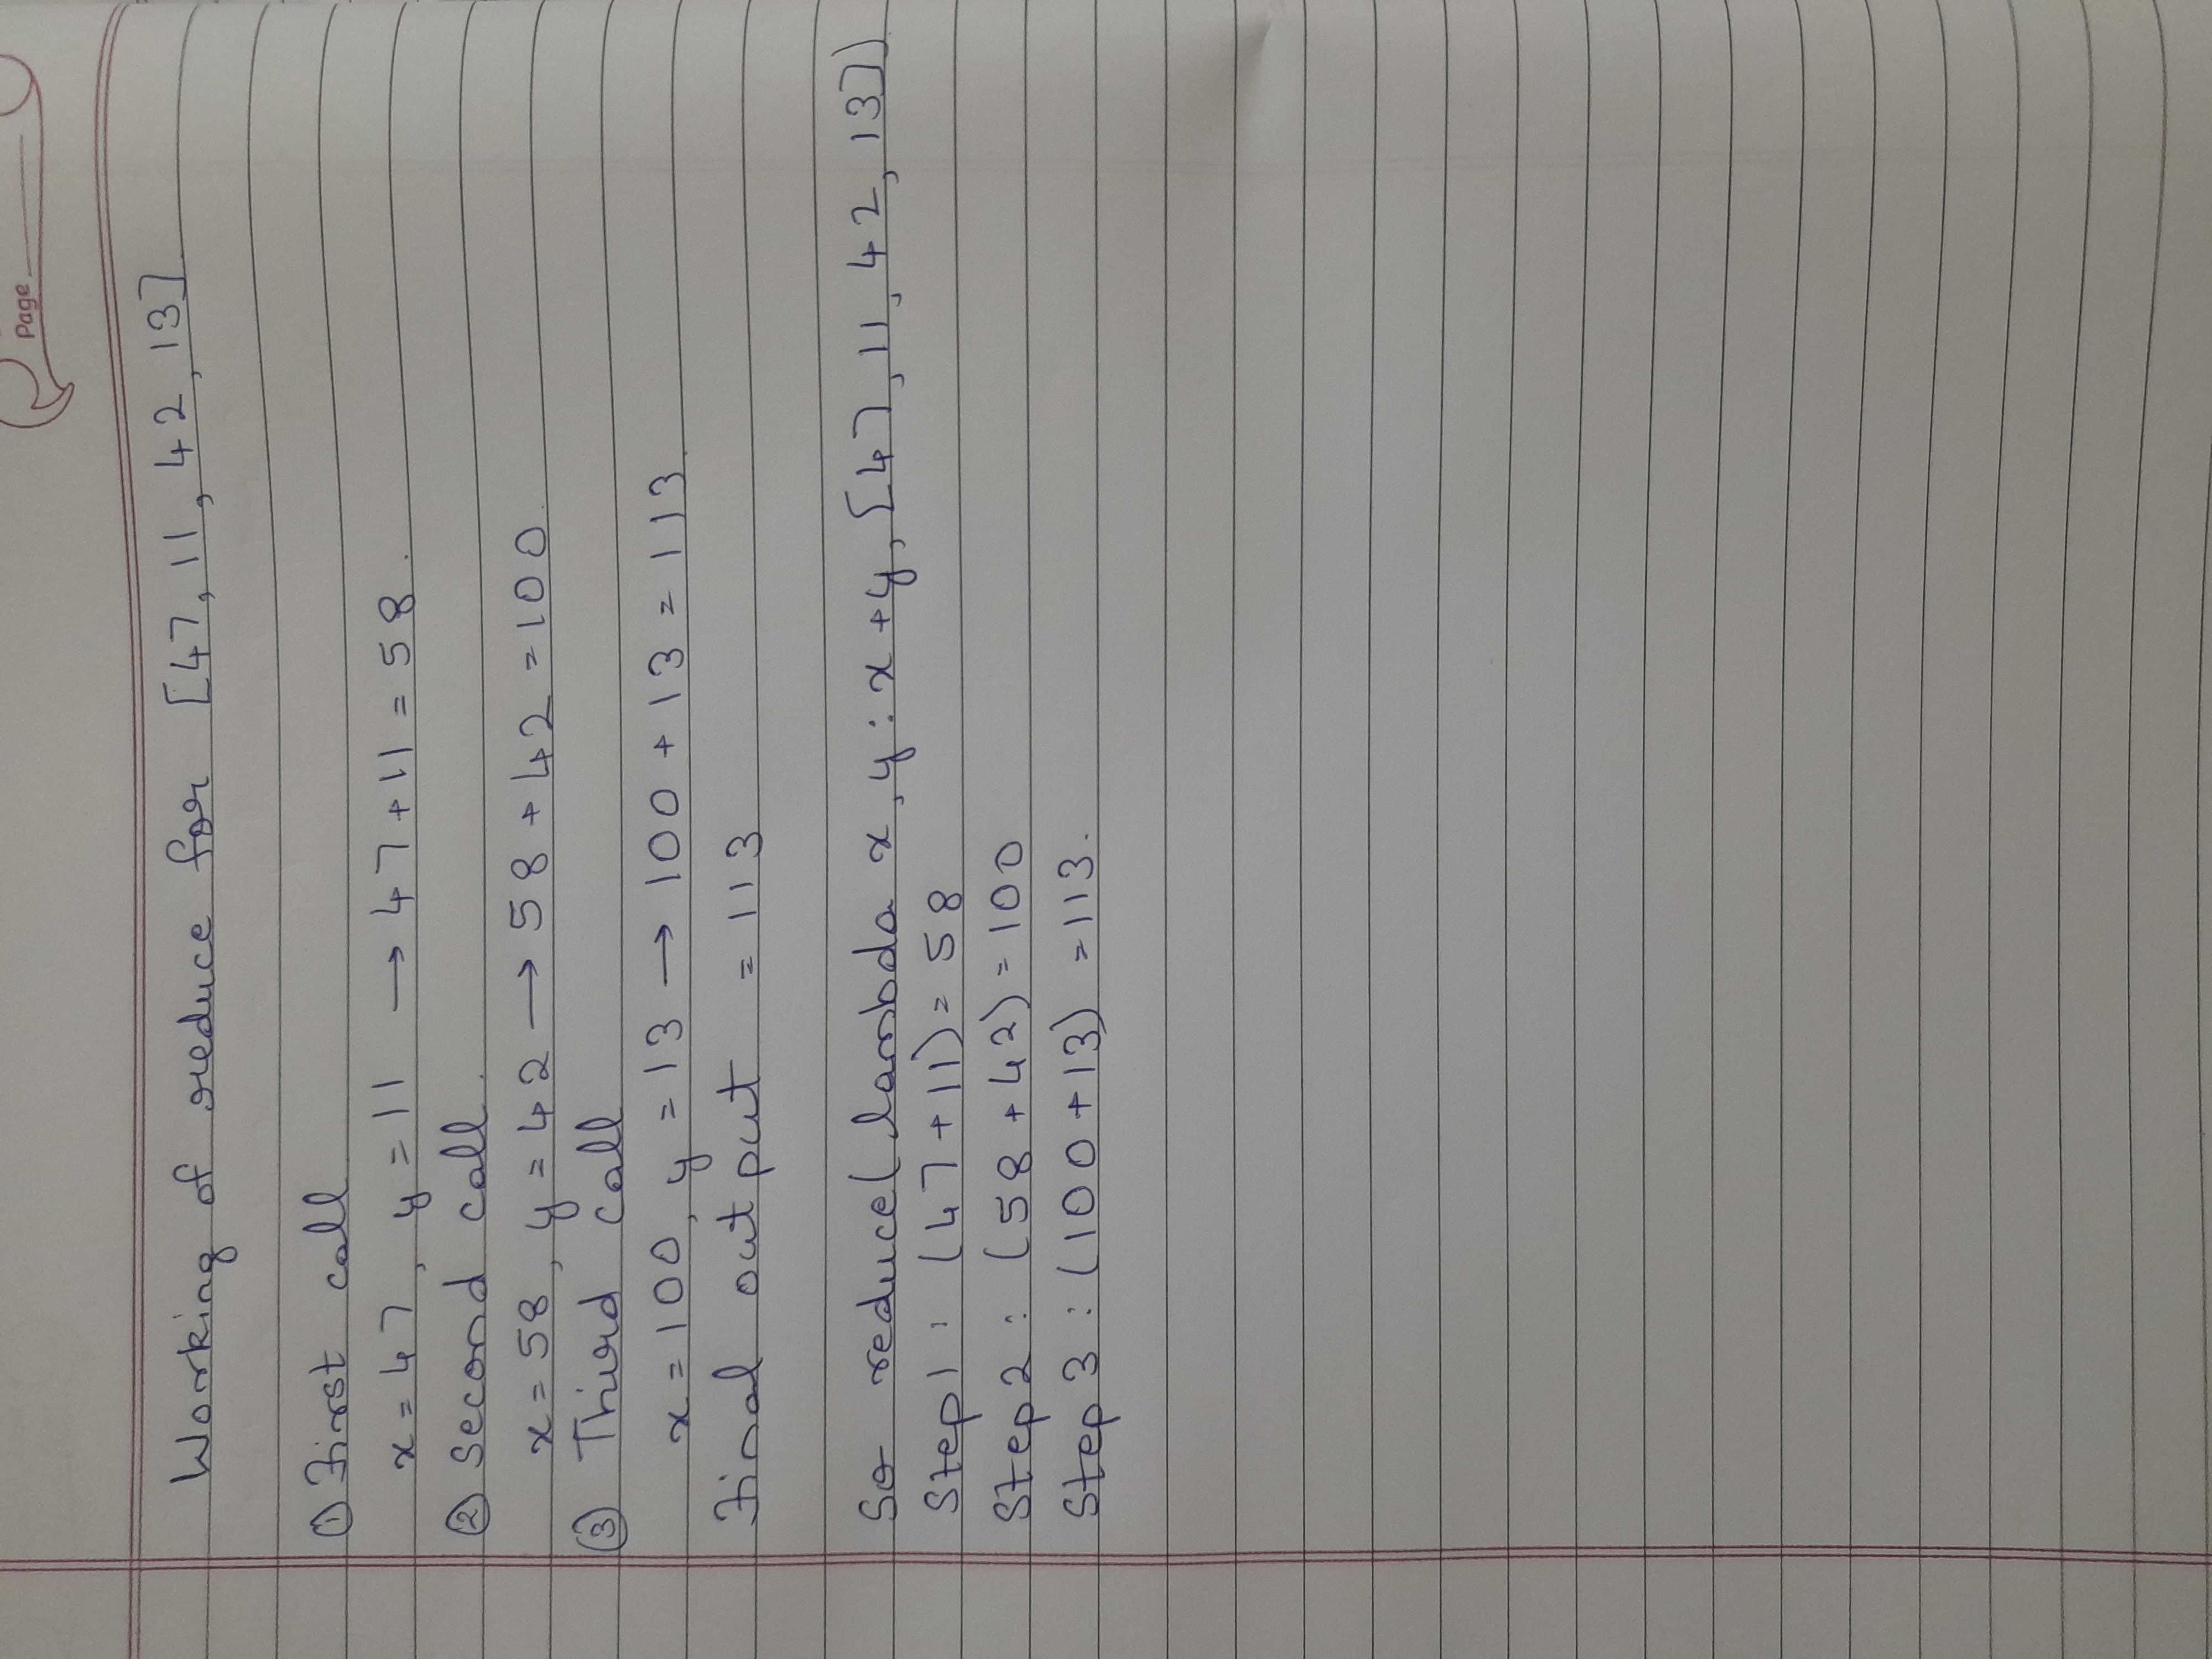 Page
Working of reduce for [47, 11, 42, 13]
① First call
x = 47, y = 11 → 47 + 11 = 58.
② Second call.
x = 58, y = 42 → 58 + 42 = 100.
③ Third call
x = 100, y = 13 → 100 + 13 = 113.
Final output = 113
So reduce( lambda x, y : x + y, [47, 11, 42, 13])
Step 1 : (47 + 11) = 58
Step 2 : (58 + 42) = 100
Step 3 : (100 + 13) = 113.